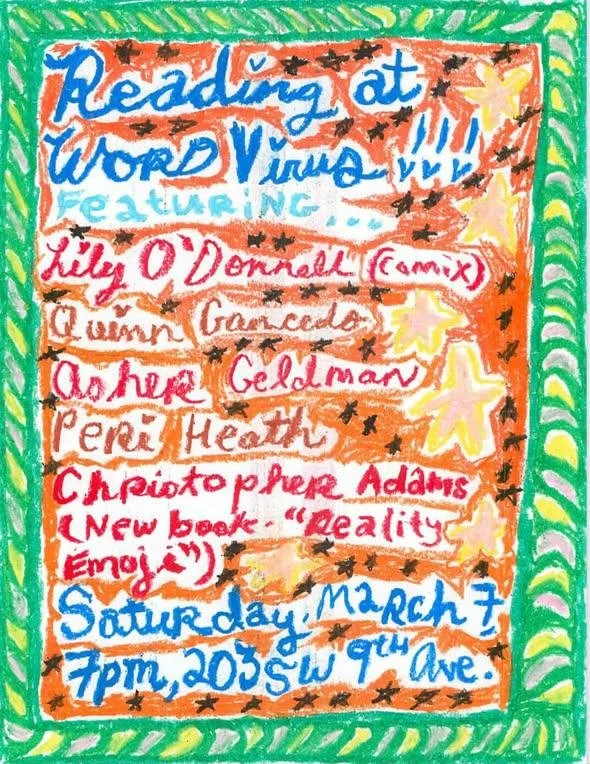 Reading at
WORD Virus!!!
Featuring...
Lily O'Donnell (comix)
Quinn Gancedo
Asher Geldman
Peri Heath
Christopher Adams
(New book - "Reality
Emoji")
Saturday, March 7
7pm, 203 SW 9th Ave.